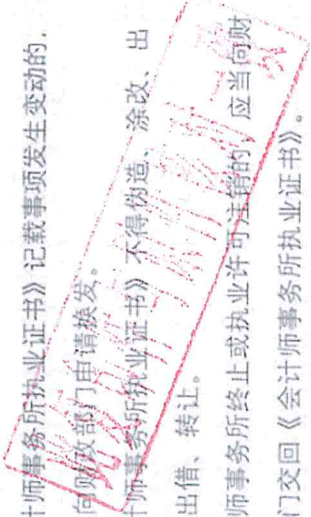 计师事务所执业证书》记载事项发生变动的，
向财政部门申请换发。
计师事务所执业证书》不得伪造、涂改、出
出借、转让。
师事务所终止或执业许可注销的，应当向财
门交回《会计师事务所执业证书》。